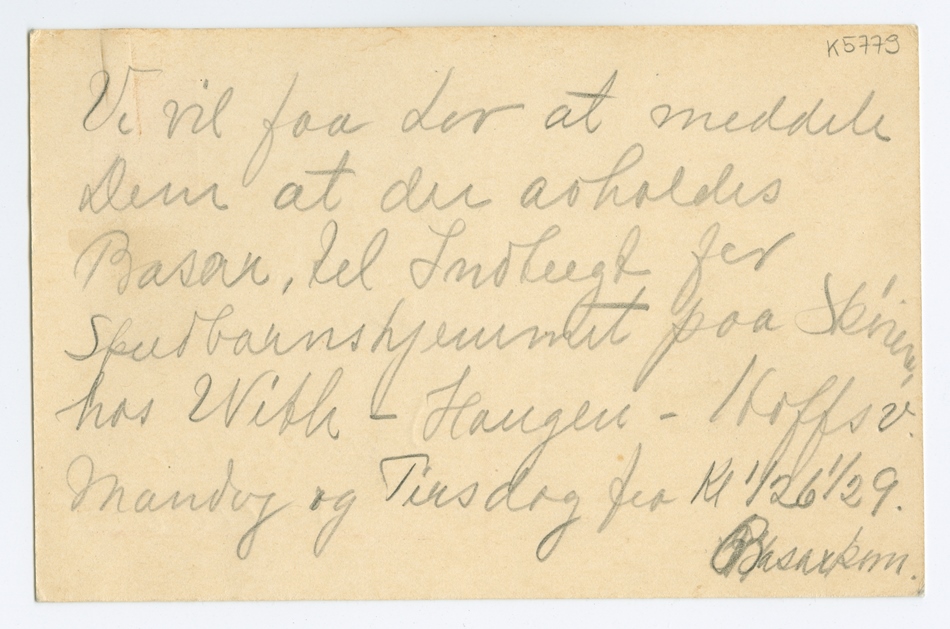 K5779
Vi vil faa Lov at meddele
Dem at der avholdes
Basar, til Indtægt for
Spedbarnshjemmet paa Skøien,
hos With - Haugen - Hoffsv.
Mandag og Tirsdag fra Kl ½6 ½9.
Basarkom.